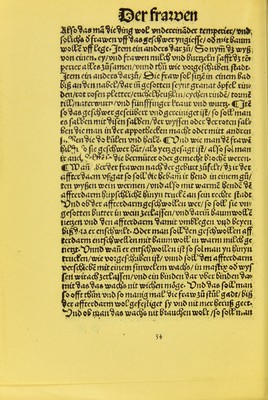 Der frawen
Also das mā die ding wol vndereināder temperier / vnd
solichs d frawen vff das geschwer giesse / od mit baum
woll vff lege. Item ein anders darzů / So nym dz wyß
von einem ey / vnd frawen milch vnd burtzeln safft dz tē
perier alles zůsamen / vnd thů wie vorgeschriben stadt.
Item ein anders darzů. Die fraw sol sitzē in einem bad
biß an den nabel / dar in gesotten seyt granat öpfel rin
den / rot rosen
till / natterwurtz / vnd fünffinger kraut vnd wurtz.
so das geschwer geseübert vnd gereiniget ist / so sol man
es salben mit disen salben / der wyssen oder der roten sal
ben die man in der appotecken macht oder mit andren
die do külen vnd heilē. Vnd wie man die frawē
sie geschwer hat / als yetz gesagt ist / also sol man
ir auch die bermůter oder gemecht
Wann der frawen nach der geburt
affterdarm vßgat so sol die hebam in hend in einem gů
ten wyßen wein wermen / vnd also mit warmē hend dē
affterdarm hüpschlich hinyn trucken an sein rechte stadt
Vnd ob der affterdarm geschwollen wer / so sol sie vn
gesotten butter in wein zerlassen / vnd darin baumwolle
netzen vnd den affterdarm damit vmblegen vnd beyen
biß das er entschwilt. Oder man sol den geschwollen aff
terdarm entschwellen mit baumwoll in warm milch ge
netzt. Vnnd wan er entschwollen ist so sol man yn hinyn
trucken / wie vorgeschriben ist / vnnd sol den affterdarm
verschiebē mit einem sinwelen wachs / in mastix od wyß
sen wirach zerlassen / vnd ein binden dar über binden da
mit das das wachs nit wichen möge. Vnd das sol man
so offt thůn vnd so manig mal die fraw zů stůl gadt / biß
der affterdarm wol gefestiget sy vnd nit mer heruß geet.
Vnd ob man das wachs nit brauchen wolt / so sol man
54